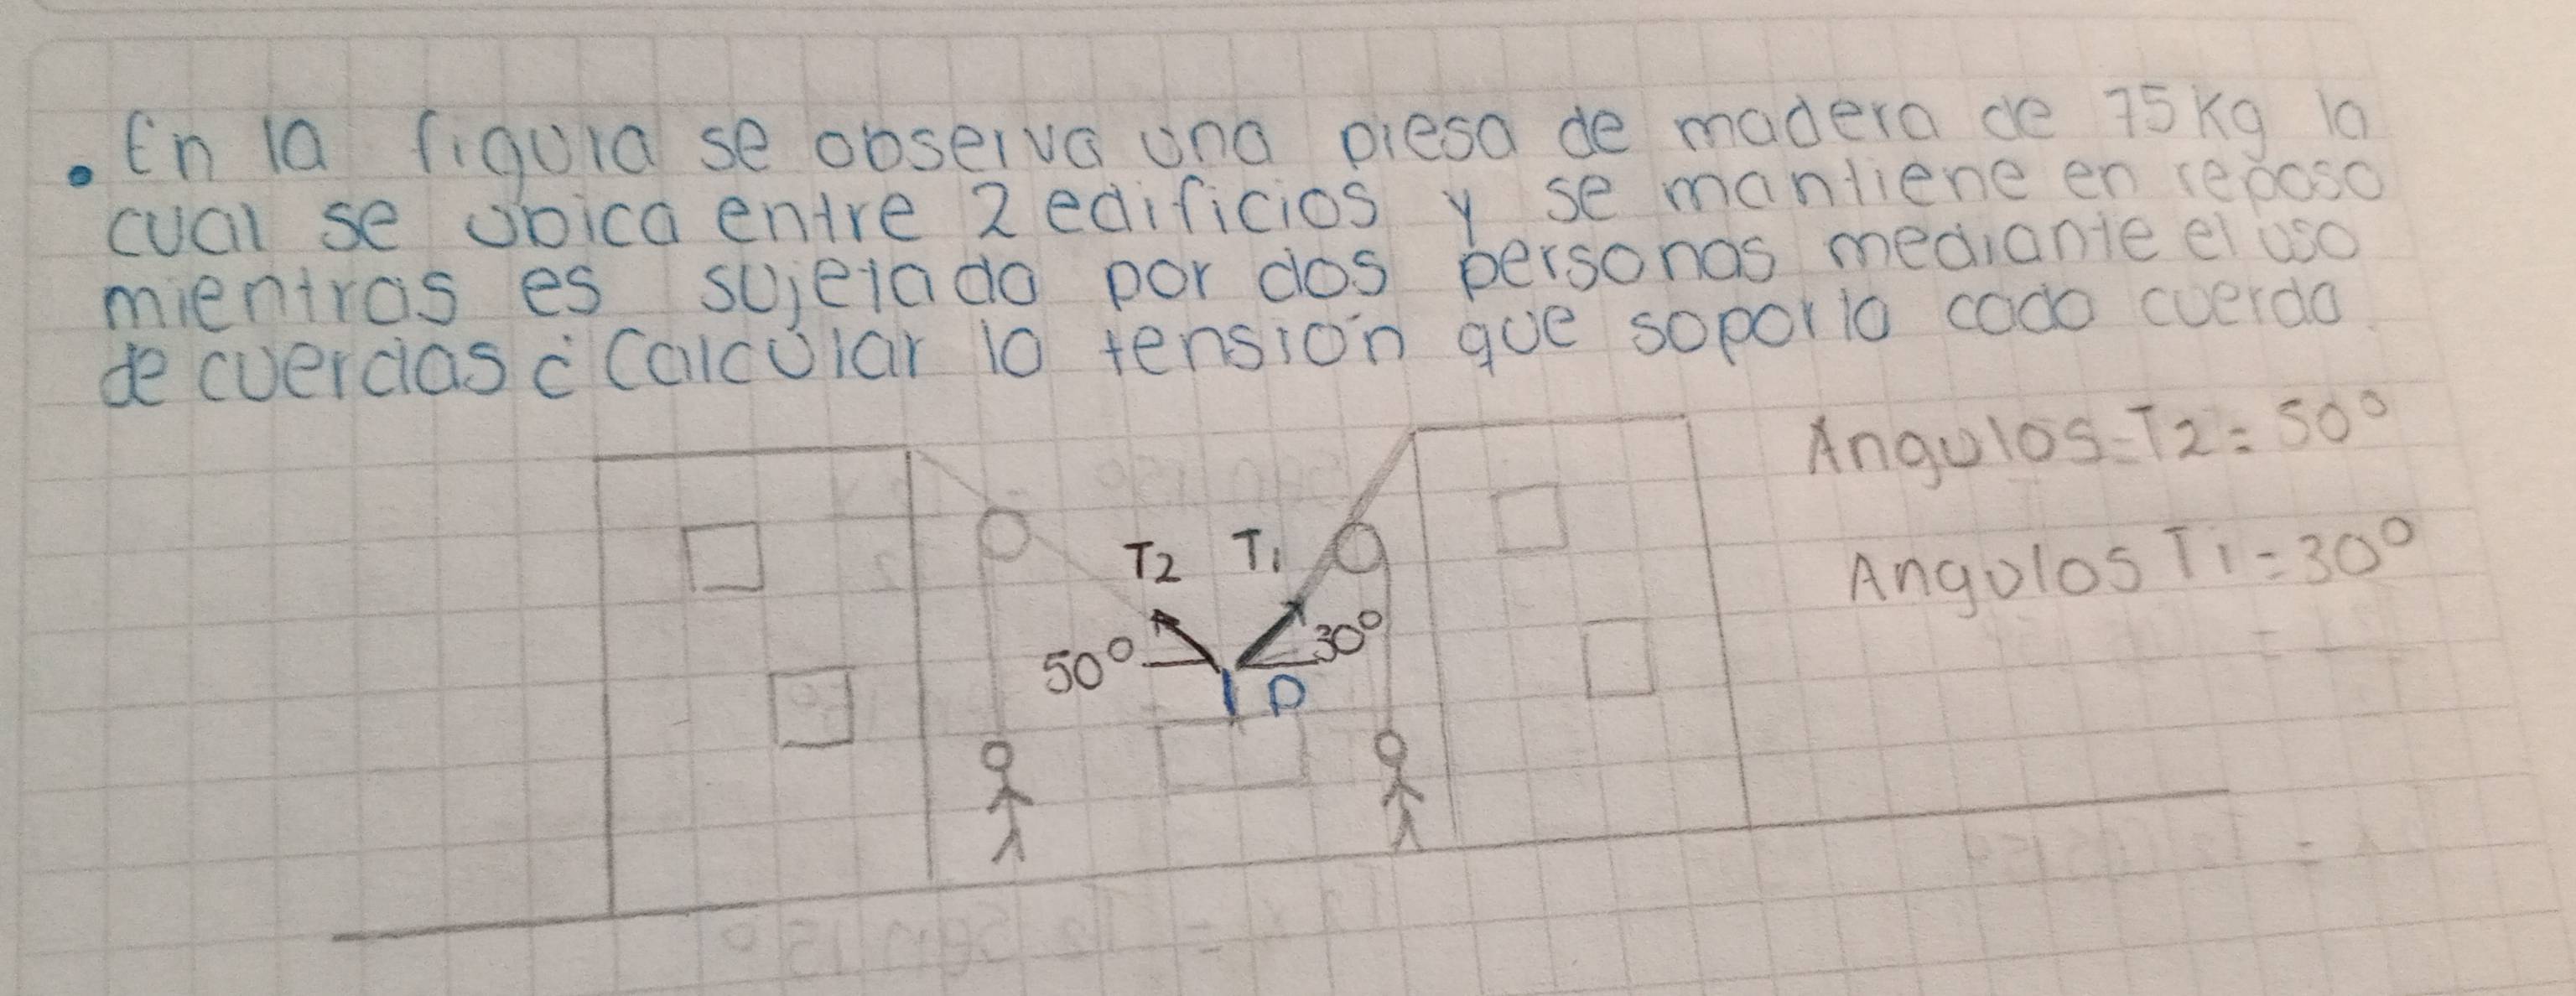 . En la figura se observa una piesa de madera de 75 Kg la
cual se ubica entre 2 edificios y se mantiene en reposo
mientras es sujetada por dos personas mediante el uso
de cuerdas ¿ Calcular la tensión que soporta cada cuerda
Angulos T2 = 50°
T2 T1
Angulos T1 = 30°
50° 30°
P